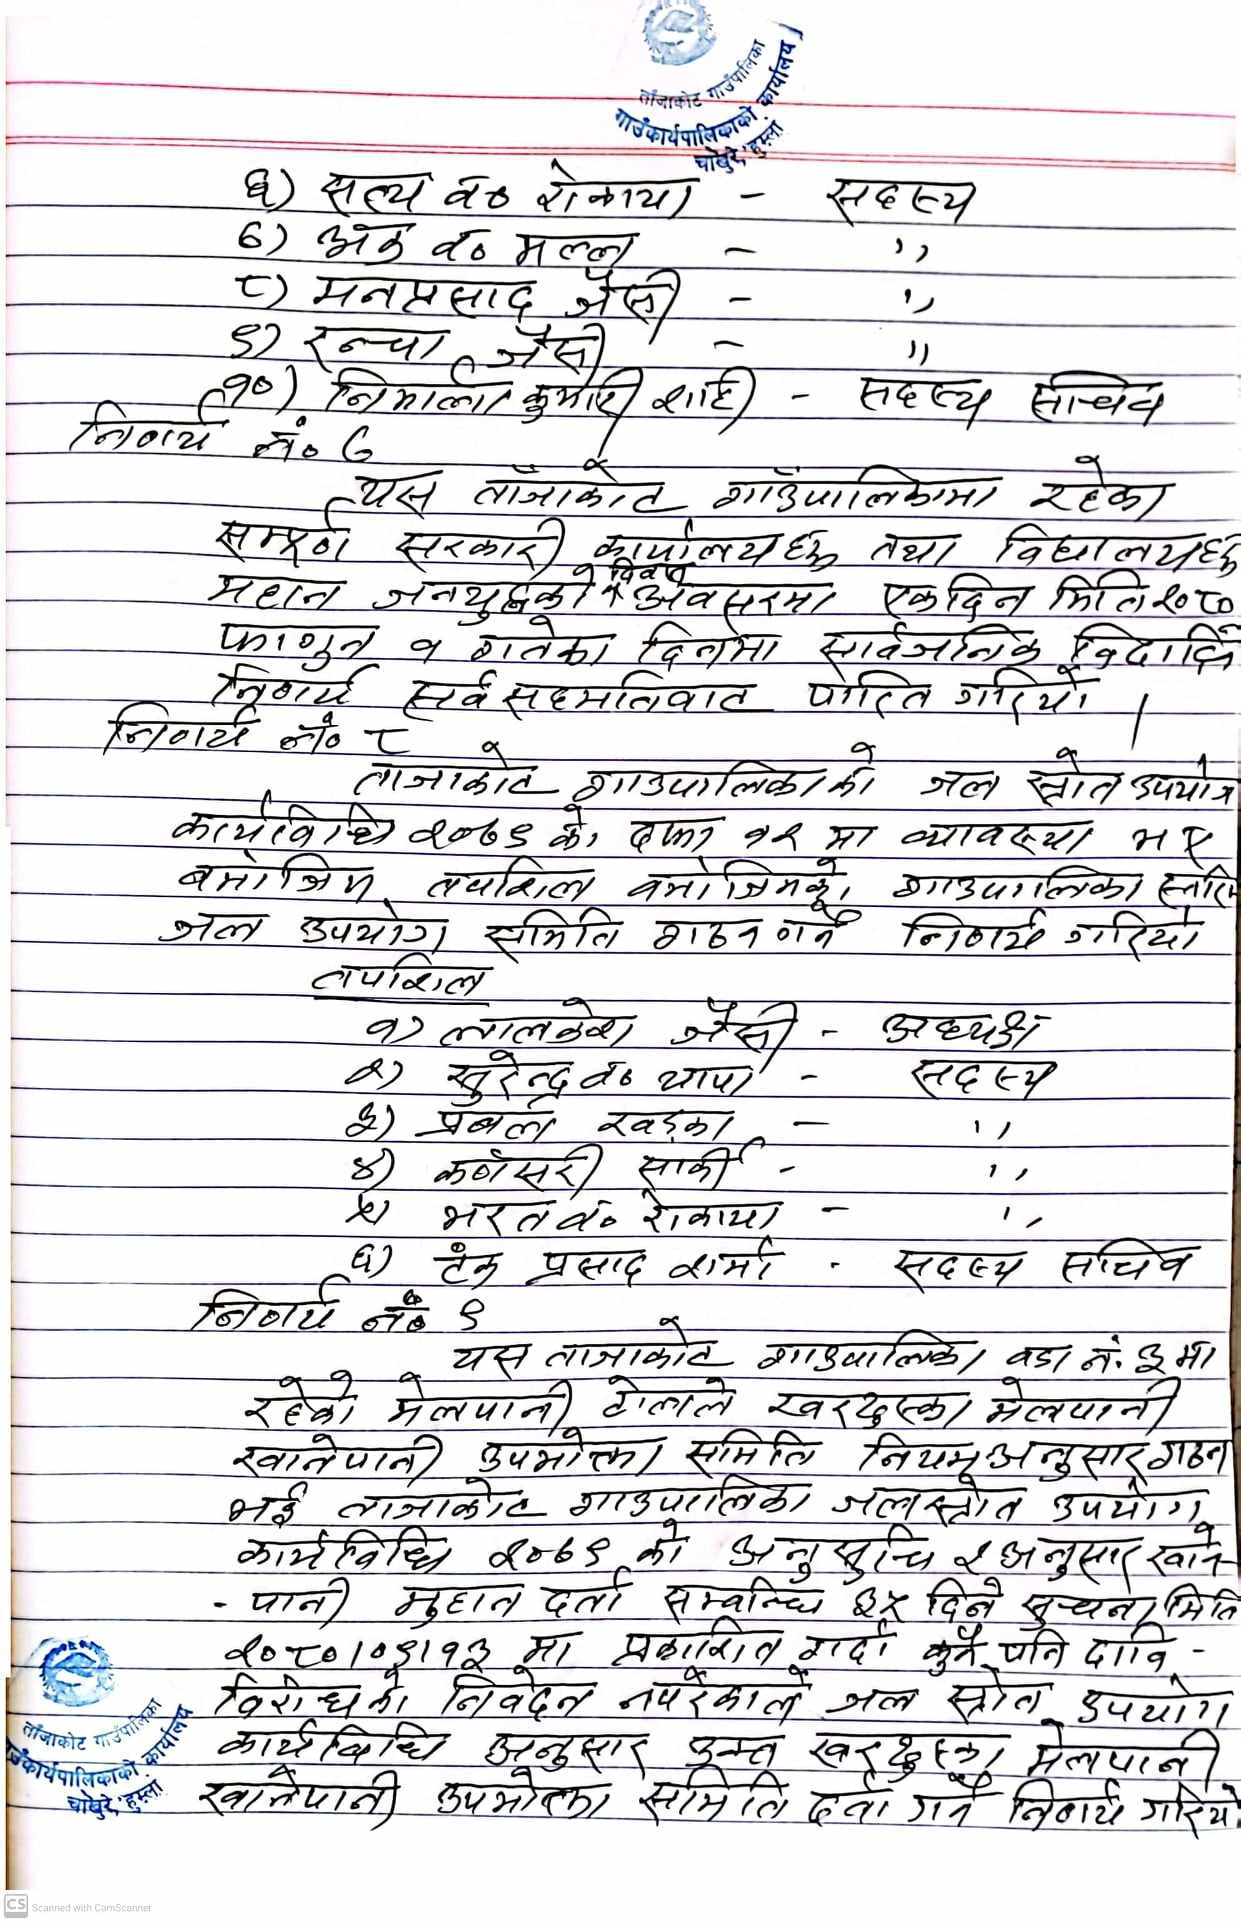 ताँजाकोट गाउँपालिका
गाउँकार्यपालिकाको कार्यालय
चाखुरे, हुम्ला
६) सत्य व० रोकाया - सदस्य
७) अर्क व० मल्ल - ,,
८) मनप्रसाद जैसी - ,,
९) रन्चा जैसी - ,,
१०) निर्माला कुमारी शाही - सदस्य सचिव
निर्णय नं० ७
यस ताँजाकोट गाँउपालिकामा रहेका
सम्पूर्ण सरकारी कार्यालयहरु तथा विद्यालयहरु
महान जनयुद्धको दिवस अवसरमा एकदिन मिति २०८०
फागुन १ गतेका दिनमा सार्वजनिक विदादिने
निर्णय सर्वसहमतिवाट पारित गरियो ।
निर्णय नं० ८
ताजाकोट गाउपालिकाको जल स्रोत उपयोग
कार्यविधि २०७९ को दफा १२ मा व्यावस्था भए
बमोजिम तपशिल वमोजिमको गाउपालिका स्तरिय
जल उपयोग समिति गठन गर्ने निर्णय गरियो
तपशिल
१) लालकेश जैसी - अध्यक्ष
२) सुरेन्द्र व० थापा - सदस्य
३) प्रबल खड्का - ,,
४) कर्णसरी सार्की - ,,
५) भरत व० रोकाया - ,,
६) टंक प्रसाद शर्मा - सदस्य सचिव
निर्णय नं० ९
यस ताजाकोट गाउपालिका वडा नं. ३ मा
रहेको मेलपानी टोलले खरढुस्का मेलपानी
खानेपानी उपभोक्ता समिति नियमअनुसार गठन
भई ताजाकोट गाउपालिका जलस्रोत उपयोग
कार्यविधि २०७९ को अनुसुचि २ अनुसार खाने
- पानी मुहान दर्ता सम्बन्धि ३५ दिने सुचना मिति
२०८०।०९।१३ मा प्रकाशित गर्दा कुनै पनि दावि -
विरोधको निवेदन नपरेकाले जल स्रोत उपयोग
कार्यविधि अनुसार उक्त खरढुस्का मेलपानी
खानेपानी उपभोक्ता समिति दर्ता गर्ने निर्णय गरियो
ताँजाकोट गाउँपालिका
गाउँकार्यपालिकाको कार्यालय
चाखुरे, हुम्ला
CS Scanned with CamScanner